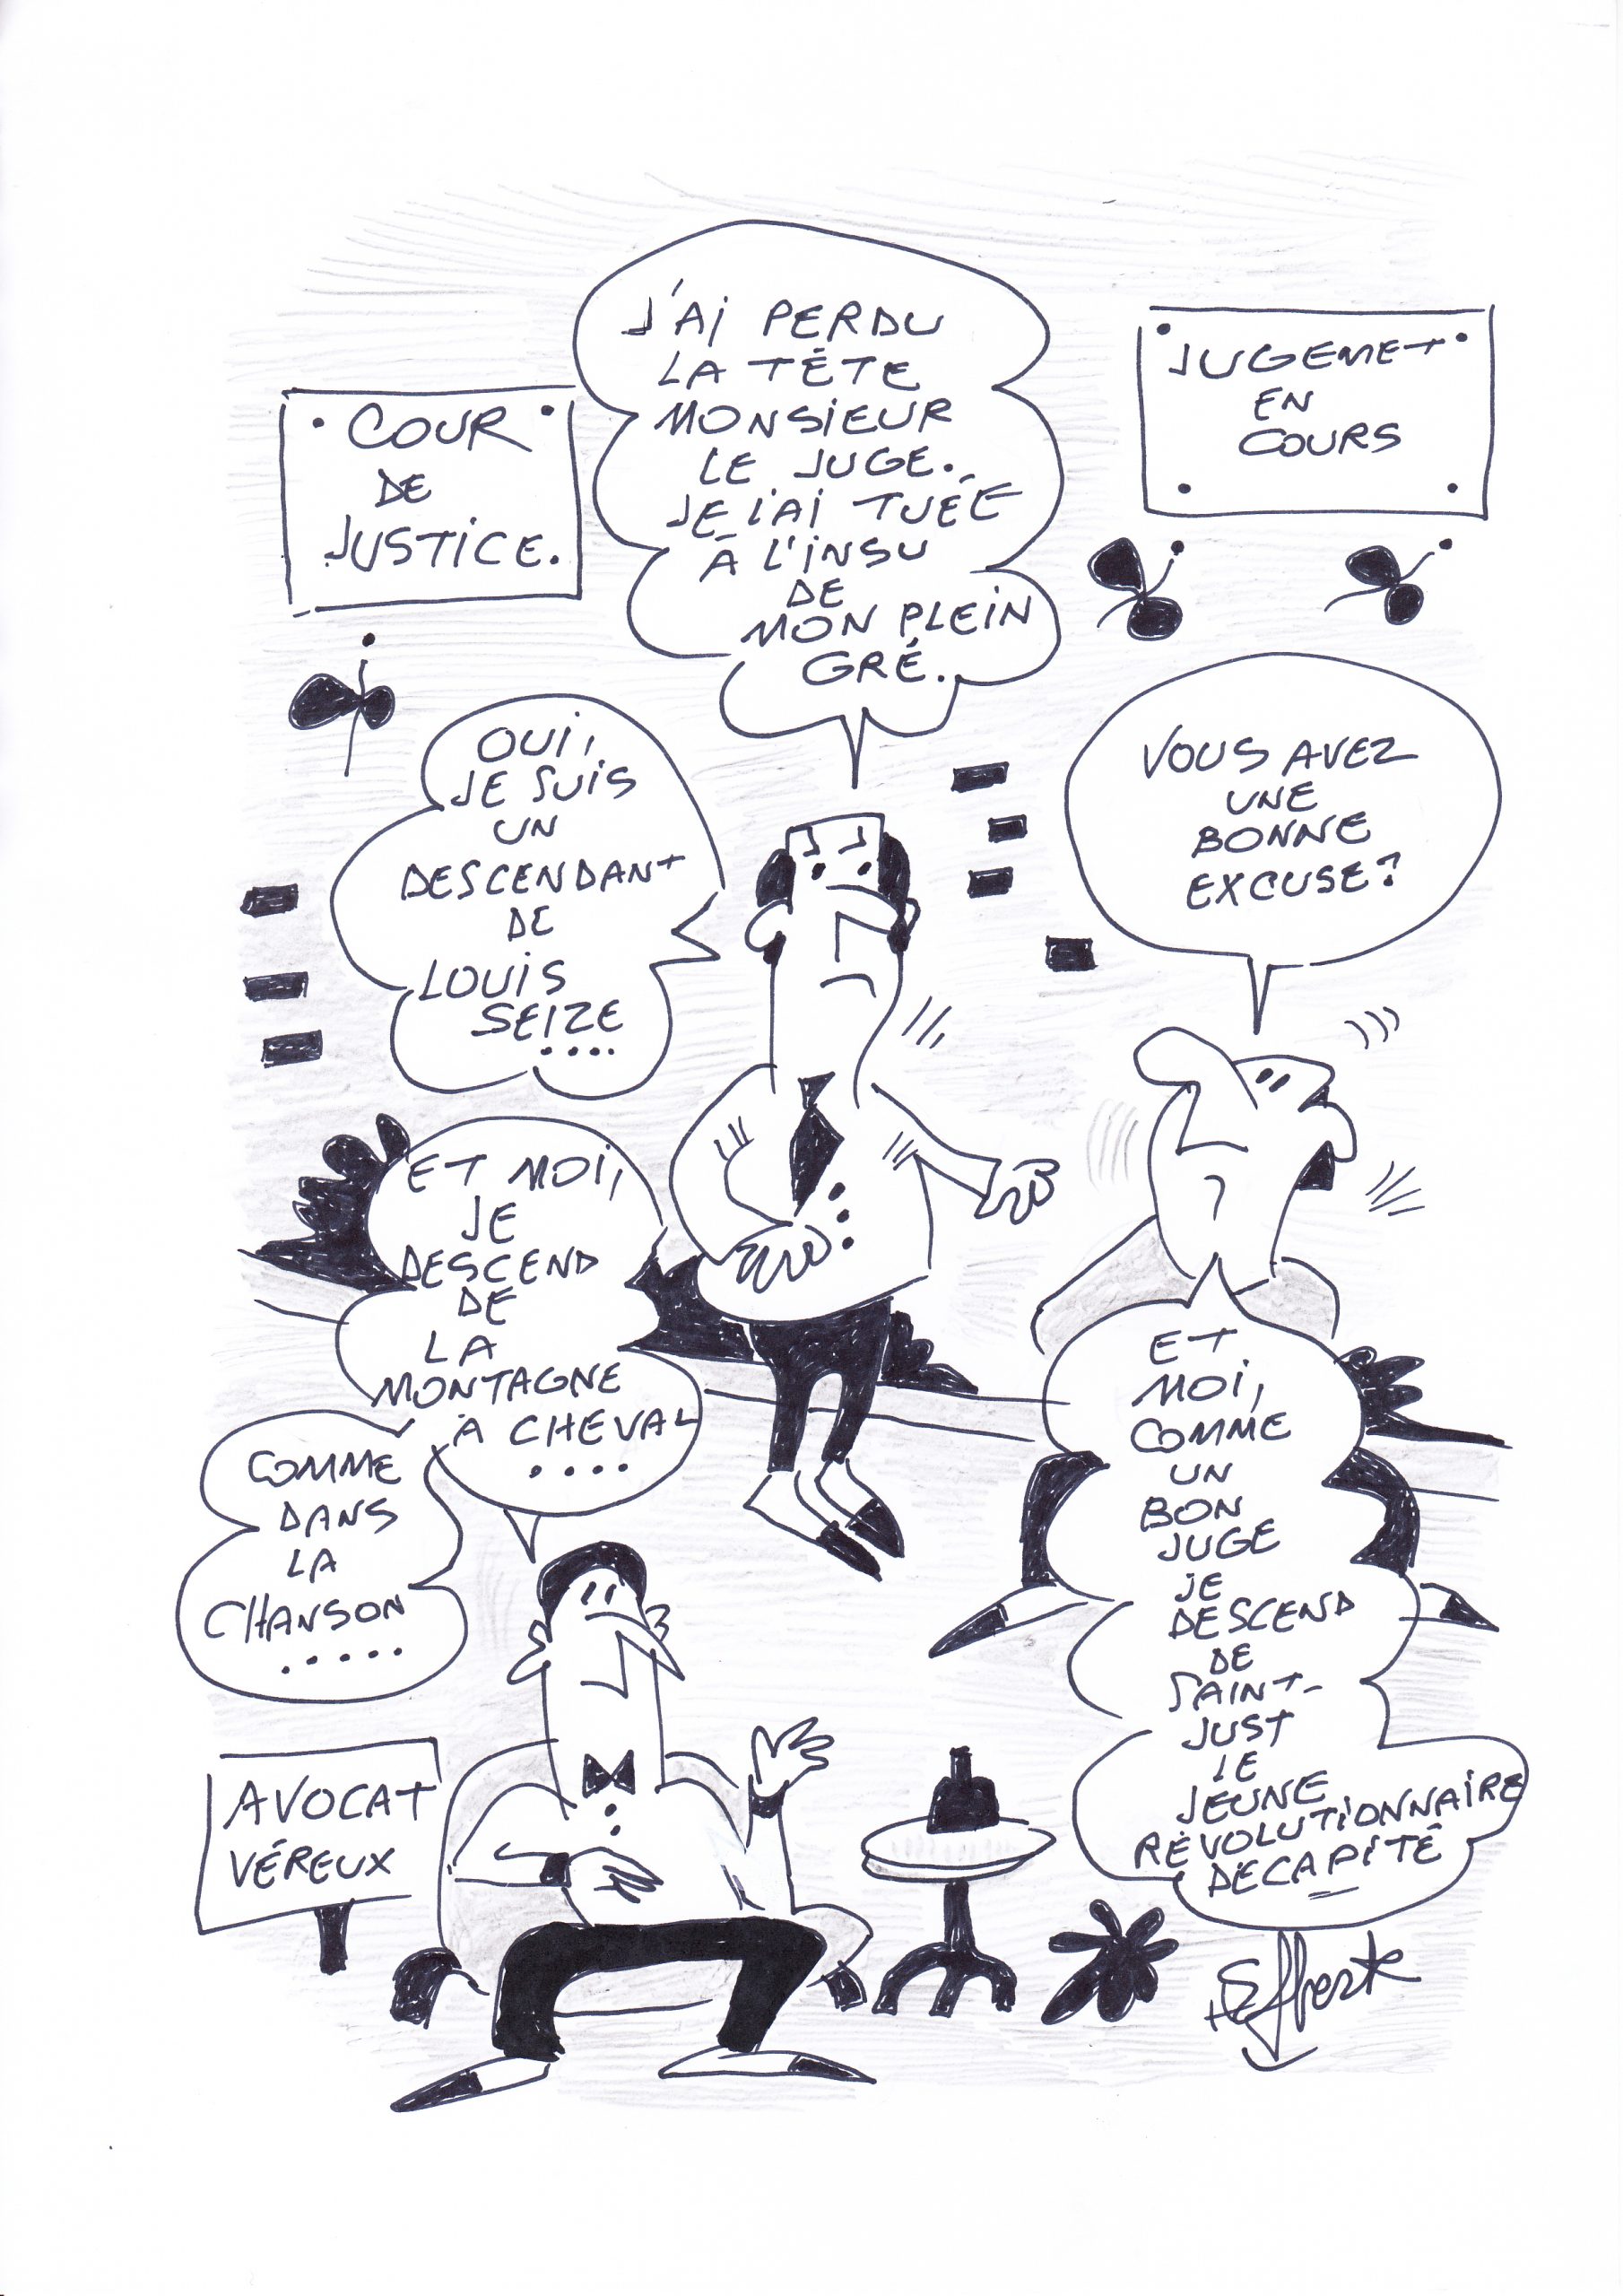 J'AI PERDU
LA TÊTE
MONSIEUR
LE JUGE.
JE L'AI TUÉE
À L'INSU
DE
MON PLEIN
GRÉ..
COUR
DE
JUSTICE.
JUGEMET
EN
COURS
VOUS AVEZ
UNE
BONNE
EXCUSE?
OUI,
JE SUIS
UN
DESCENDANT
DE
LOUIS
SEIZE
....
ET MOI,
JE
DESCEND
DE
LA
MONTAGNE
À CHEVAL
....
COMME
DANS
LA
CHANSON
.....
ET
MOI,
COMME
UN
BON
JUGE
JE
DESCEND
DE
SAINT-
JUST
LE
JEUNE
RÉVOLUTIONNAIRE
DÉCAPITÉ
AVOCAT
VÉREUX